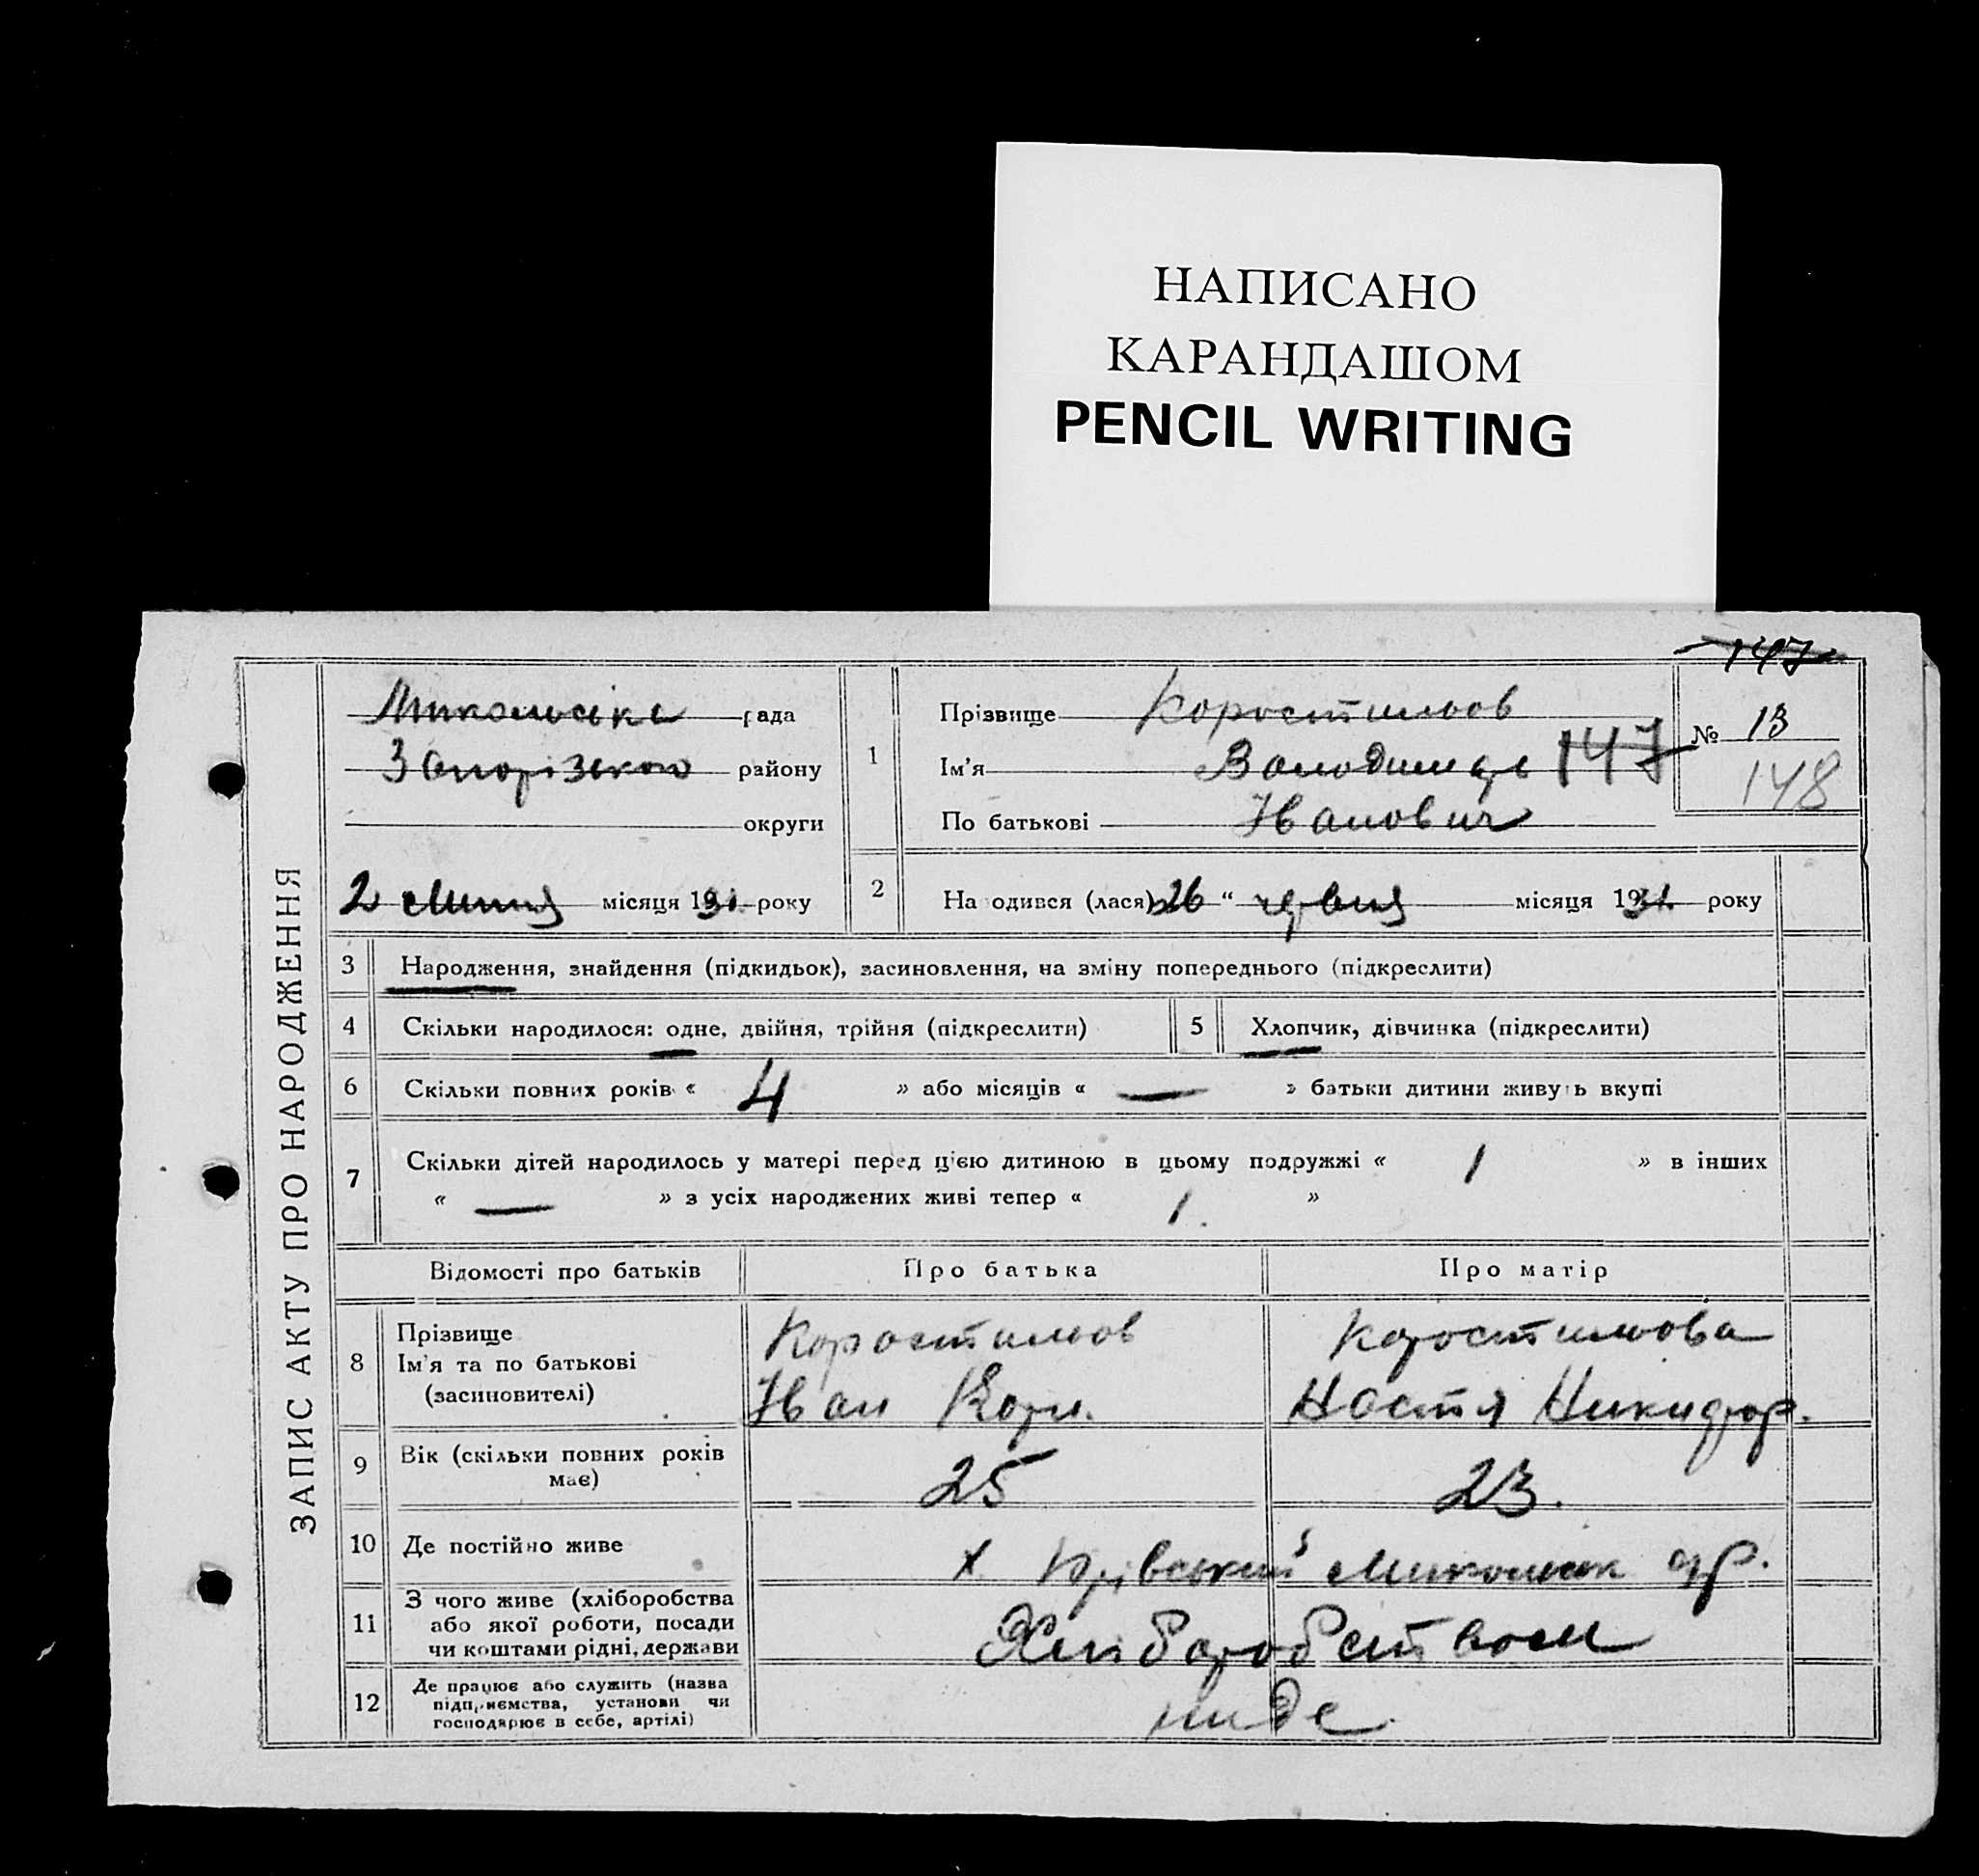 НАПИСАНО
КАРАНДАШОМ
PENCIL WRITING
147
ЗАПИС АКТУ ПРО НАРОДЖЕННЯ
Микольська рада
Запорізького району
округи
2 Липня місяця 1931 року
1
Прізвище Коростильов
Ім'я Володимир 147
По батькові Іванович
№ 13
148
2 На одився (лася) 26 “ червня місяця 1931 року
3 Народження, знайдення (підкидьок), засиновлення, на зміну попереднього (підкреслити)
4 Скільки народилося: одне, двійня, трійня (підкреслити) 5 Хлопчик, дівчинка (підкреслити)
6 Скільки повних років « 4 » або місяців « — » батьки дитини живуть вкупі
7 Скільки дітей народилось у матері перед цією дитиною в цьому подружжі « 1 » в інших
« — » з усіх народжених живі тепер « 1. »
Відомості про батьків Про батька Про матір
8 Прізвище Коростильов Коростильова
Ім'я та по батькові
(засиновителі) Іван Настя Никифор.
9 Вік (скільки повних років
має) 25 23.
10 Де постійно живе х.
11 З чого живе (хліборобства
або якої роботи, посади
чи коштами рідні, держави Хліборобством
12 Де працює або служить (назва
підприємства, установи чи
господарює в себе, артілі) ниде.